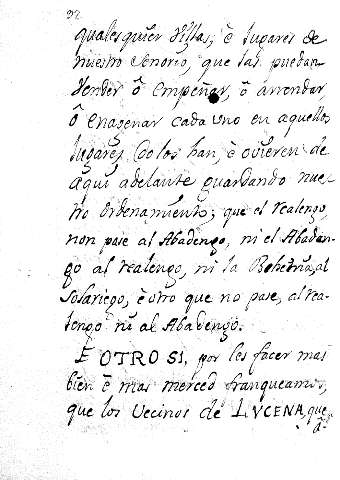 92
qualesquier Villas, è lugares de
nuestro Senorio, que las puedan
Vender ô empeñar, ô arrendar
ô enagenar cada uno en aquellos
lugares, do los han, è ovieren de
aqui adelante guardando nues-
tro ordenamiento; que el realengo,
non pase al Abadengo, ni el Abaden-
go al realengo, ni la Behetria, al
solariego, è otro que no pase, al rea-
lengo ni al Abadengo.
E OTRO SI, por les facer mas
bien è mas merced franqueamos,
que los Vecinos de LVCENA, que
a-